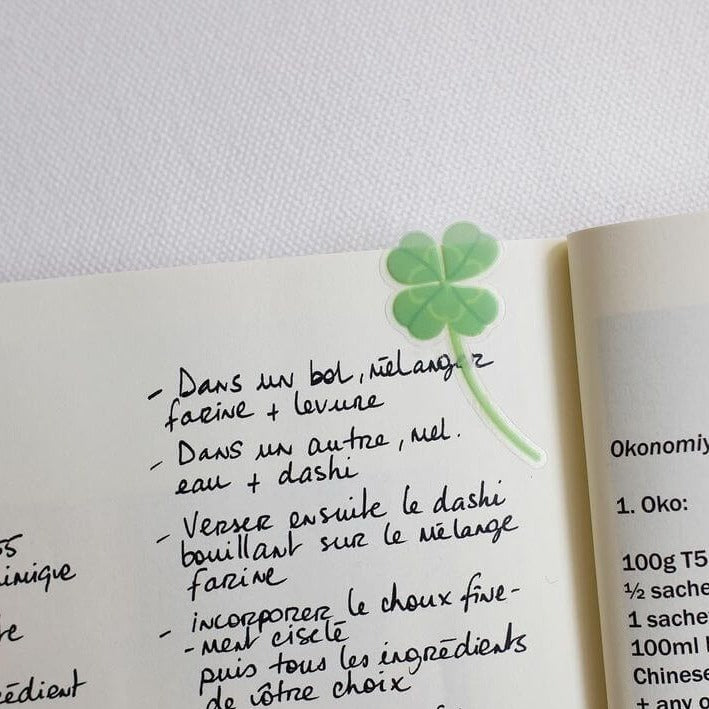 55
re
édient
- Dans un bol, mélanger
farine + levure
- Dans un autre, mel.
eau + dashi
- Verser ensuite le dashi
bouillant sur le mélange
farine
- incorporer le choux fine-
-ment ciselé
puis tous les ingrédients
de vôtre choix
Okonomiy
1. Oko:
100g T5
½ sache
1 sache
100ml
Chinese
+ any o